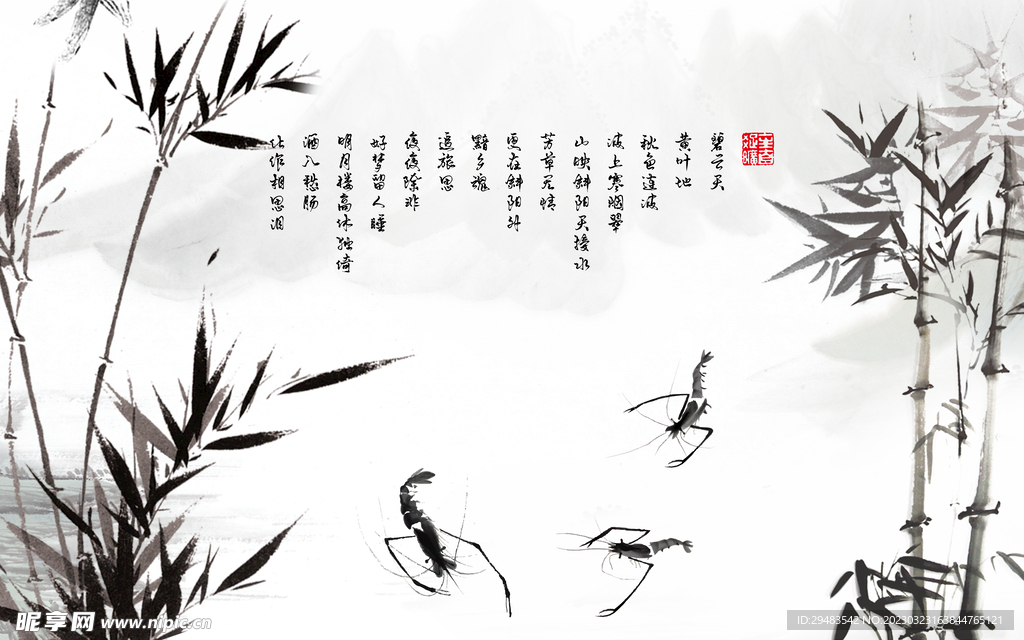 碧云天
黄叶地
秋色连波
波上寒烟翠
山映斜阳天接水
芳草无情
更在斜阳外
黯乡魂
追旅思
夜夜除非
好梦留人睡
明月楼高休独倚
酒入愁肠
化作相思泪
昵享网 www.nipic.cn
ID:29483542 NO:20230323163844765121